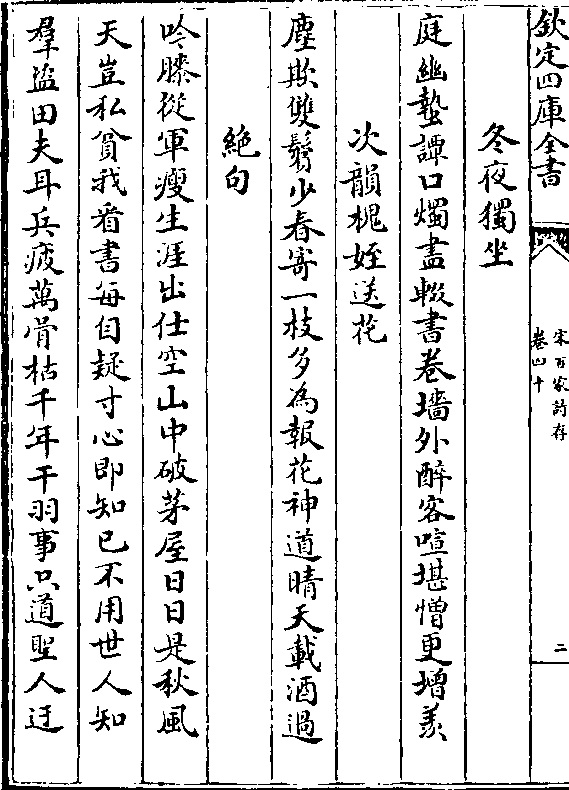 欽定四庫全書
宋百家詩存
卷四十
二
冬夜獨坐
庭幽蟄譚口燭盡輟書卷墻外醉客喧堪憎更增羨
次韻槐姪送花
塵欺雙鬢少春寄一枝多為報花神道晴天載酒過
絶句
吟膝從軍瘦生涯出仕空山中破茅屋日日是秋風
天豈私貧我看書每自疑寸心即知已不用世人知
羣盜田夫耳兵疲萬骨枯千年干羽事只道聖人迂